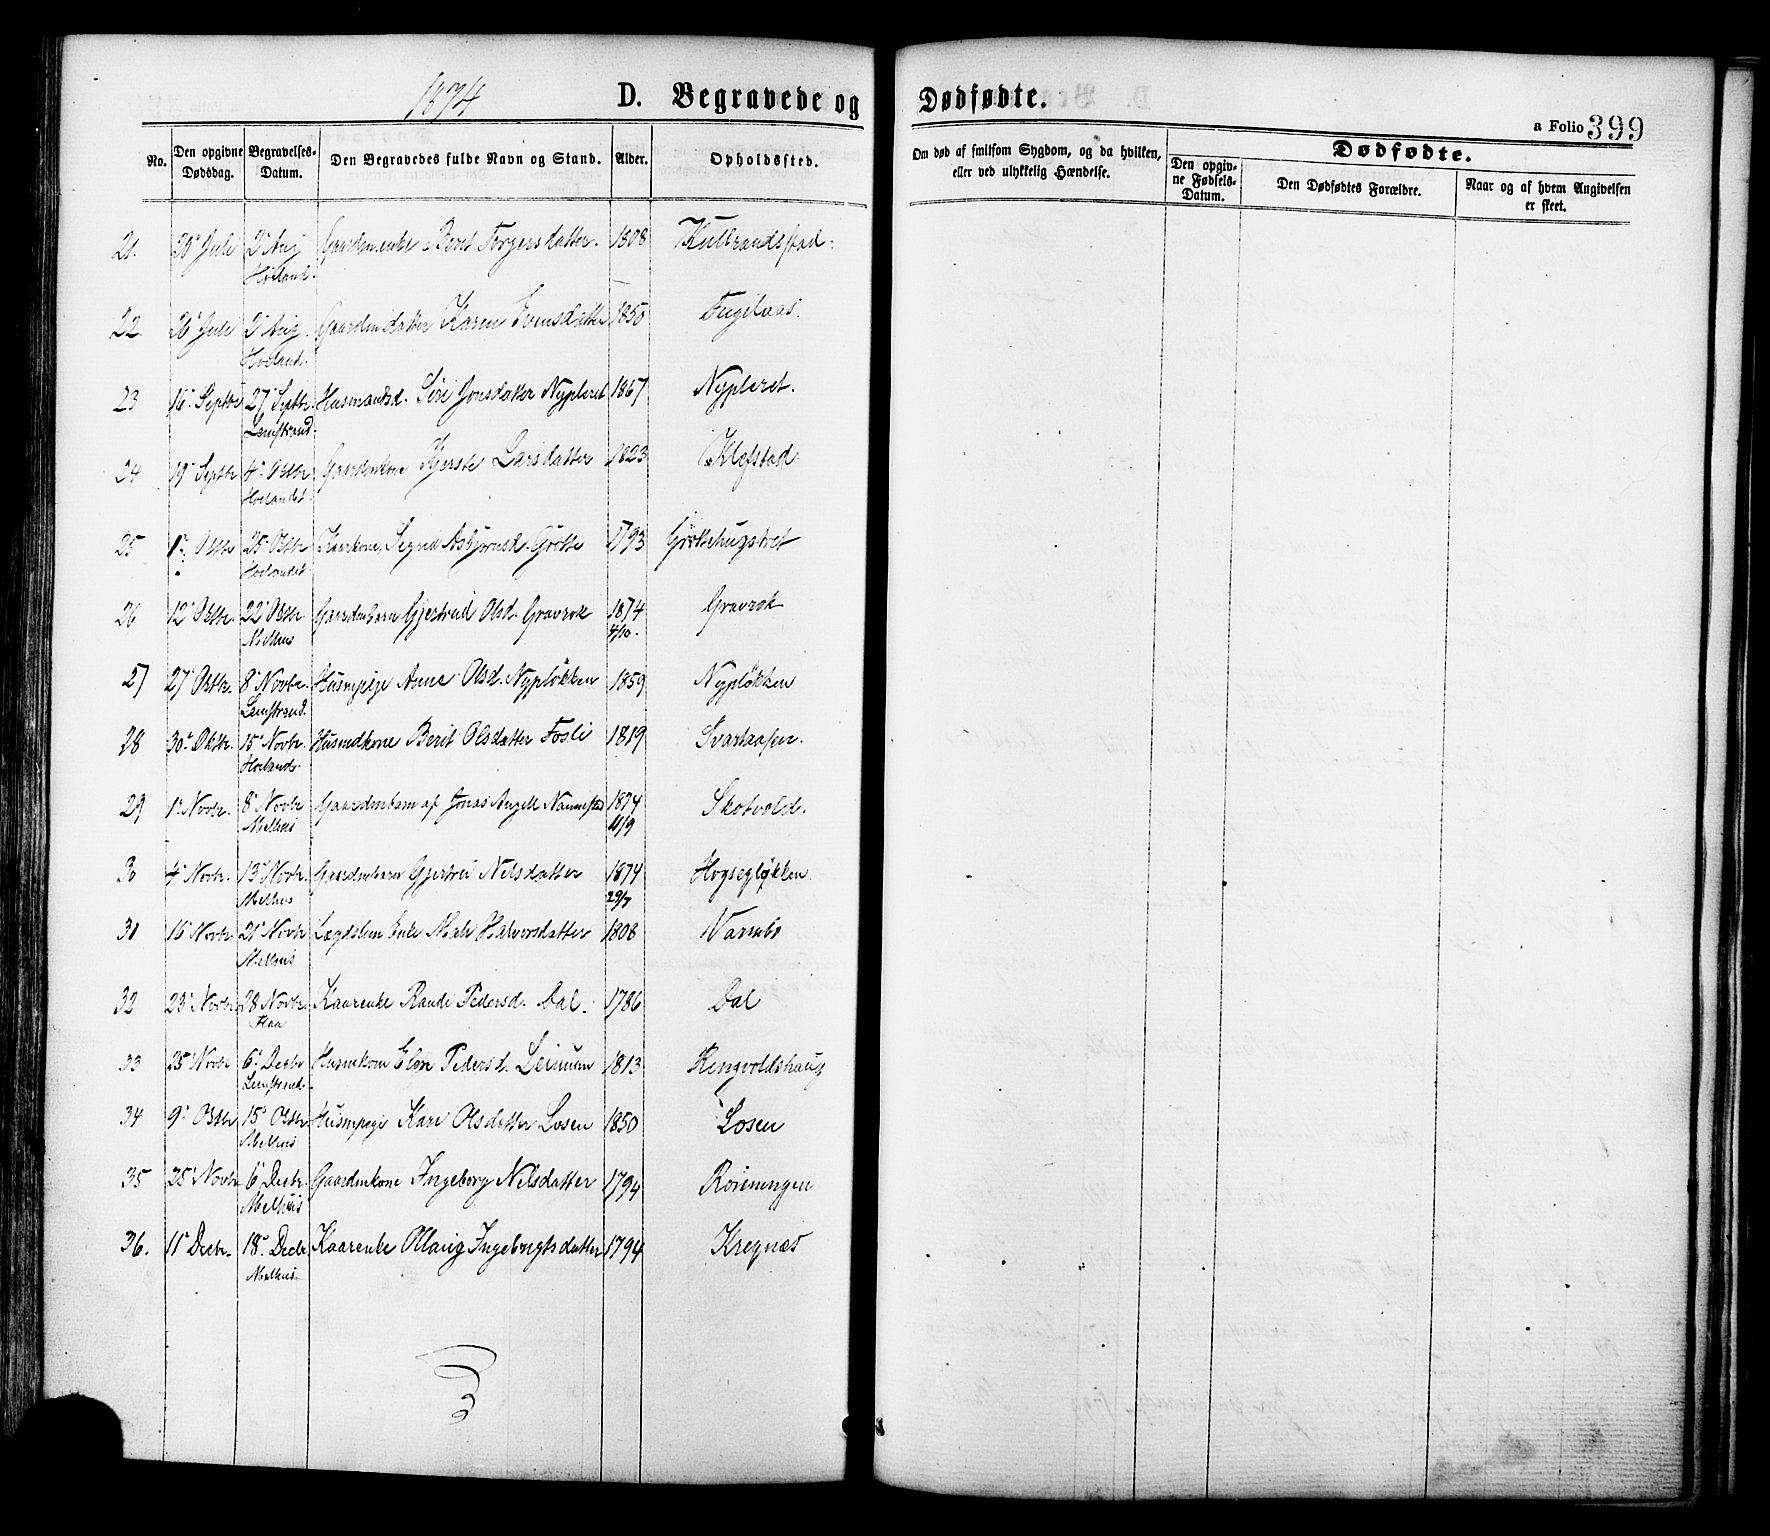 1874
D. Begravede og Dødfødte.
a Folio 399
No. Den opgivne Dødsdag. Begravelses-Datum. Den Begravedes fulde Navn og Stand. Alder. Opholdssted. Om død af smitsom Sygdom, og da hvilken, eller ved ulykkelig Hændelse. Dødfødte.
Den opgivne Fødsels-Datum. Den Dødfødtes Forældre. Naar og af hvem Angivelsen er skeet.
21. 20de Juli 2 Aug Gaardmenke Beret Torgersdatter. 1808 Kulbrandsstad.
Høiland.
22. 26 Juli 2 Aug. Gaardmdatter Karen Evensdatter 1850 Fuglaas.
Hoeland.
23 16 Septbr 27 Septbr. Husmandsd. Siri Jonsdatter Nypleret 1867 Nypleret.
Lenstrand.
24 19 Septbr 4 Octbr. Gaardmkone Kjerste Larsdatter 1823 Klefstad
Hoelandet.
25 1 Octbr 25 Octbr Kaarkone Sigrid Asbjørnsd. Grötte 1793 Gröttehugstret
Hoelandet
26 12 Octbr. 22 Octbr Gaardmbarn Gjertrud Olsd. Gravrok 1874 Gravrok
Melhus 4/10.
27 27 Octbr. 8 Novbr. Husmpige Anne Olsd. Nypløkken 1859 Nypløkken
Lenstrand.
28 30 Oktbr. 15 Novbr. Husmdkone Berit Olsdatter Fosli 1819 Svartaasen.
Hoelands.
29 1 Novbr. 8 Novbr Gaardmbarn af Jonas Angell Nannestad 1874 Skotvold.
Melhus 11/9
30 4 Novbr. 13 Novbr. Gaardmbarn Gjertru Nilsdatter 1874 Hogsegløkken
Melhus 29/7
31 16 Novbr. 21 Novbr Lægdslem Enke Mali Halvorsdatter 1808 Varmbo
Melhus
32 23 Novbr 28 Novbr. Kaarenke Randi Pedersd. Dal. 1786 Dal
Flaa
33 25 Novbr 6 Decbr Husmkone Elen Pedersd. Leinum 1813 Ringvoldshaug
Lenstrand.
34 9 Octbr 15 Octbr Husmpige Kari Olsdatter Losen 1850 Losen
Melhus
35 28 Novbr 6 Decbr. Gaardmkone Ingeborg Nilsdatter 1794 Rosmungen
Melhus
36. 11 Decbr. 18 Decbr Kaarenke Ollaug Ingebrigtsdatter 1794 Kregnæs
Melhus